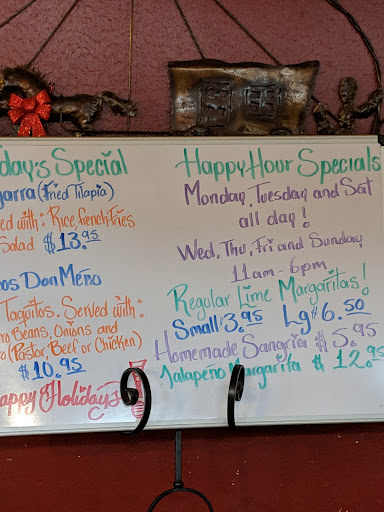 day's Special
garra (Fried Tilapia)
ed with: Rice, french Fries
Salad $13.95
os Don Meño
Taquitos. Served with:
ro Beans, Onions and
o (Pastor, Beef or Chicken)
$10.95
appy Holidays!
Happy Hour Specials
Monday, Tuesday and Sat
all day!
Wed, Thu, Fri and Sunday
11am - 6pm
Regular Lime Margaritas!
Small $3.95 Lg $6.50
Homemade Sangria $5.95
Jalapeño Margarita $12.95